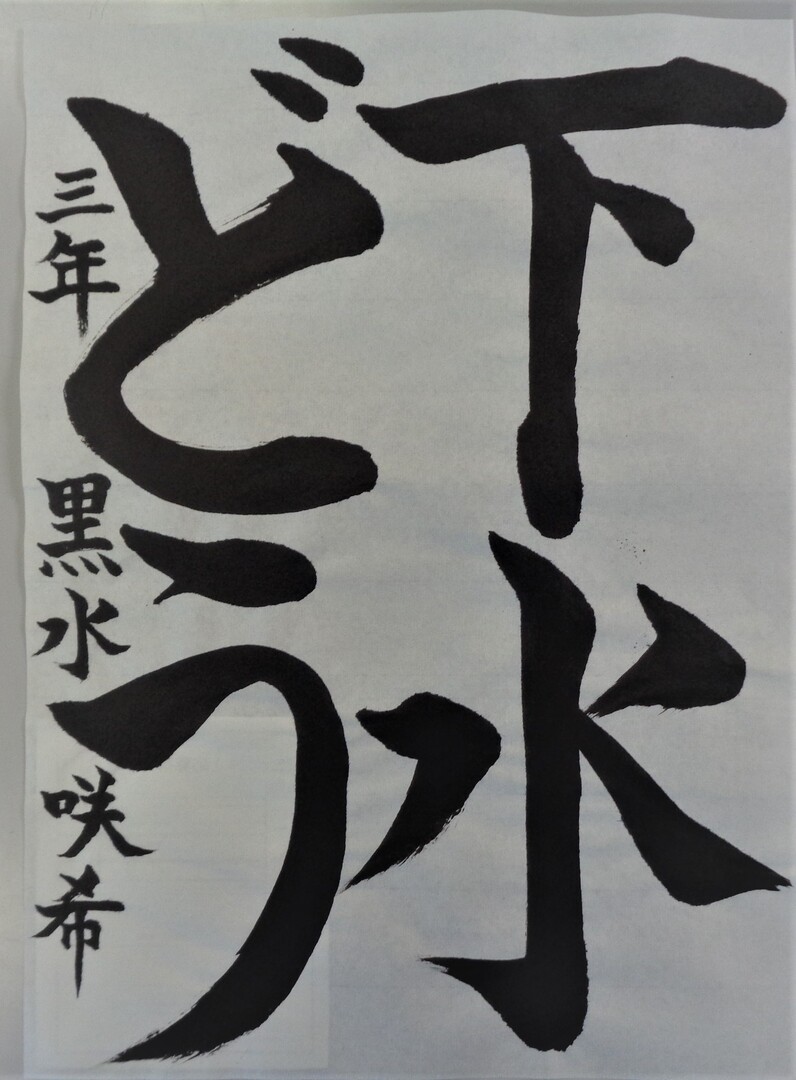 下水
どう
三年 黒水 咲希